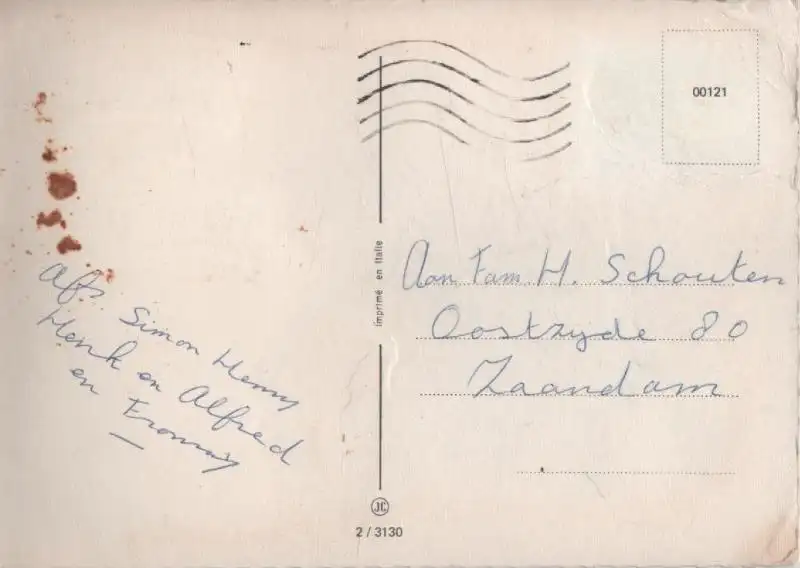 00121
Aan Fam. H. Schouten
Oostzyde 80
Zaandam
imprimé en Italie
Afz. Simon Henny
Henk en Alfred
en
JC
2 / 3130